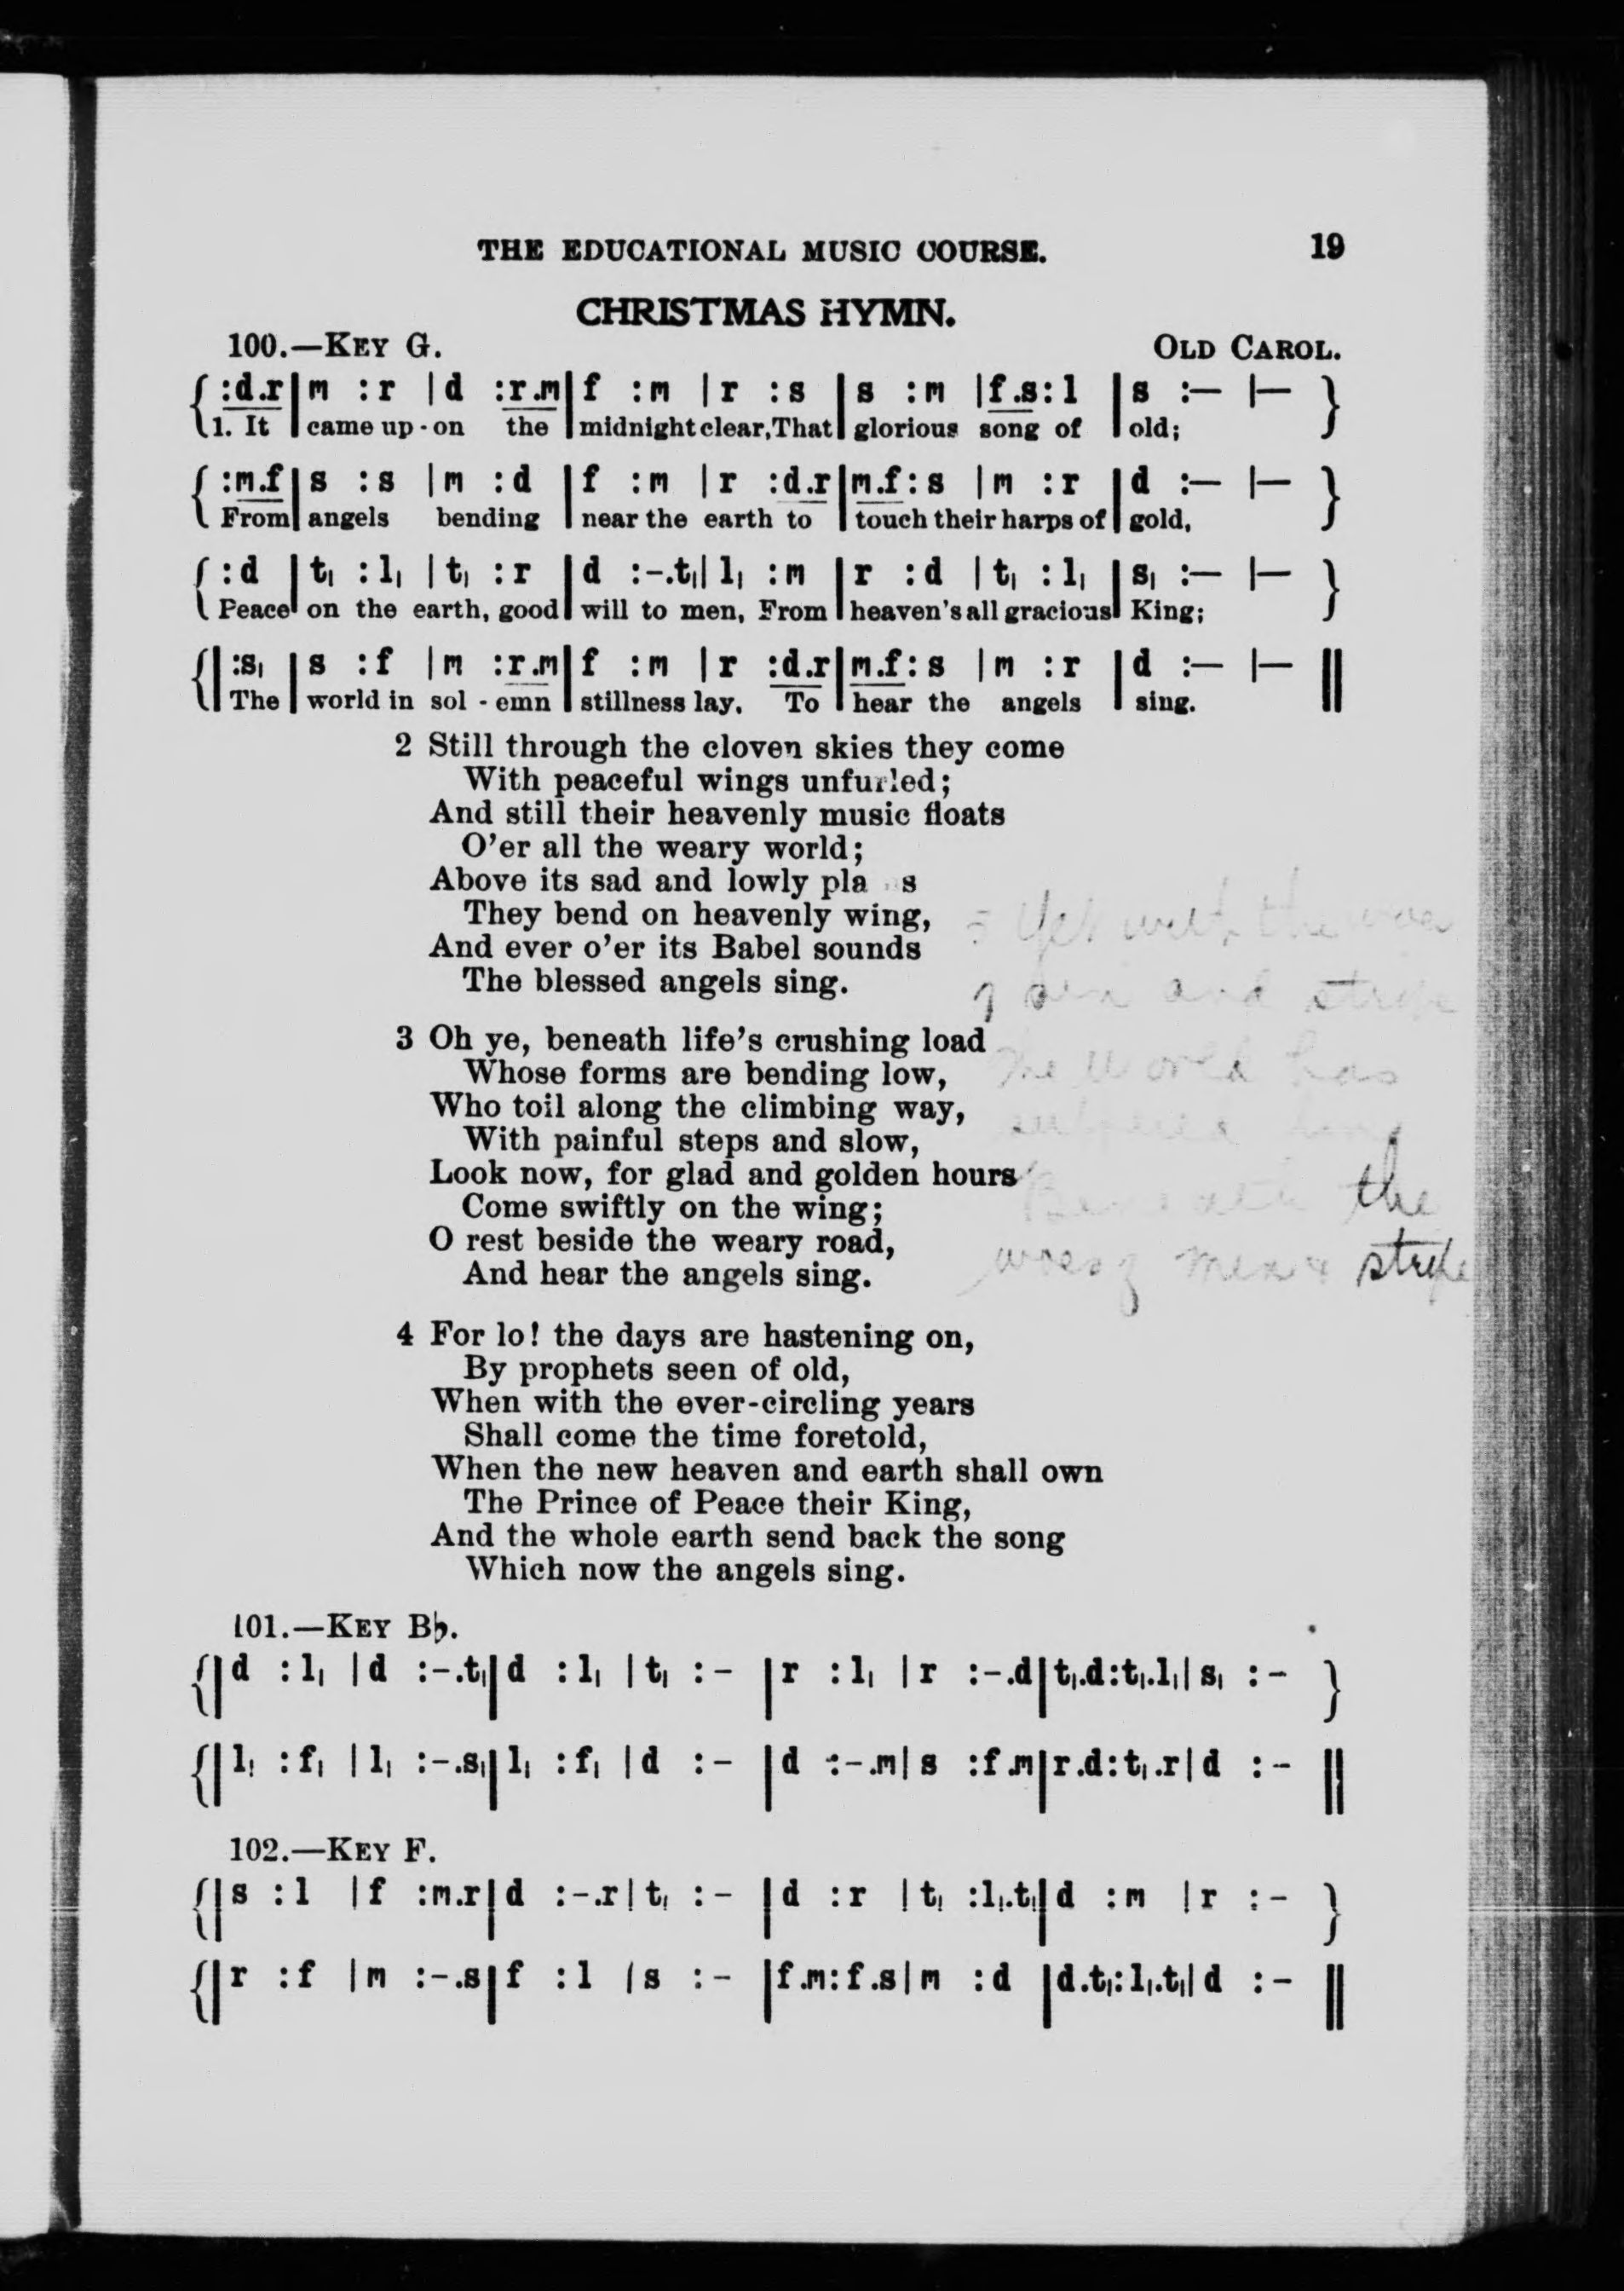 THE EDUCATIONAL MUSIC COURSE. 19
CHRISTMAS HYMN.
100.—KEY G. OLD CAROL.
{ :d.r | m :r | d :r.m | f :m | r :s | s :m | f.s:l | s :— | — }
1. It came up-on the midnight clear, That glorious song of old;
{ :m.f | s :s | m :d | f :m | r :d.r | m.f:s | m :r | d :— | — }
From angels bending near the earth to touch their harps of gold,
{ :d | t₁ :l₁ | t₁ :r | d :-.t₁ | l₁ :m | r :d | t₁ :l₁ | s₁ :— | — }
Peace on the earth, good will to men, From heaven's all gracious King;
{ | :s₁ | s :f | m :r.m | f :m | r :d.r | m.f:s | m :r | d :— | — ||
The world in sol-emn stillness lay, To hear the angels sing.
2 Still through the cloven skies they come
With peaceful wings unfurled;
And still their heavenly music floats
O'er all the weary world;
Above its sad and lowly pla s
They bend on heavenly wing,
And ever o'er its Babel sounds
The blessed angels sing.
Yet with the woes
of sin and strife
The World has
suffered long
Beneath the
woes of men & strife
3 Oh ye, beneath life's crushing load
Whose forms are bending low,
Who toil along the climbing way,
With painful steps and slow,
Look now, for glad and golden hours
Come swiftly on the wing;
O rest beside the weary road,
And hear the angels sing.
4 For lo! the days are hastening on,
By prophets seen of old,
When with the ever-circling years
Shall come the time foretold,
When the new heaven and earth shall own
The Prince of Peace their King,
And the whole earth send back the song
Which now the angels sing.
101.—KEY B♭.
{ | d :l₁ | d :-.t₁ | d :l₁ | t₁ :- | r :l₁ | r :-.d | t₁.d:t₁.l₁ | s₁ :- }
{ | l₁ :f₁ | l₁ :-.s₁ | l₁ :f₁ | d :- | d :-.m | s :f.m | r.d:t₁.r | d :- ||
102.—KEY F.
{ | s :l | f :m.r | d :-.r | t₁ :- | d :r | t₁ :l₁.t₁ | d :m | r :- }
{ | r :f | m :-.s | f :l | s :- | f.m:f.s | m :d | d.t₁:l₁.t₁ | d :- ||